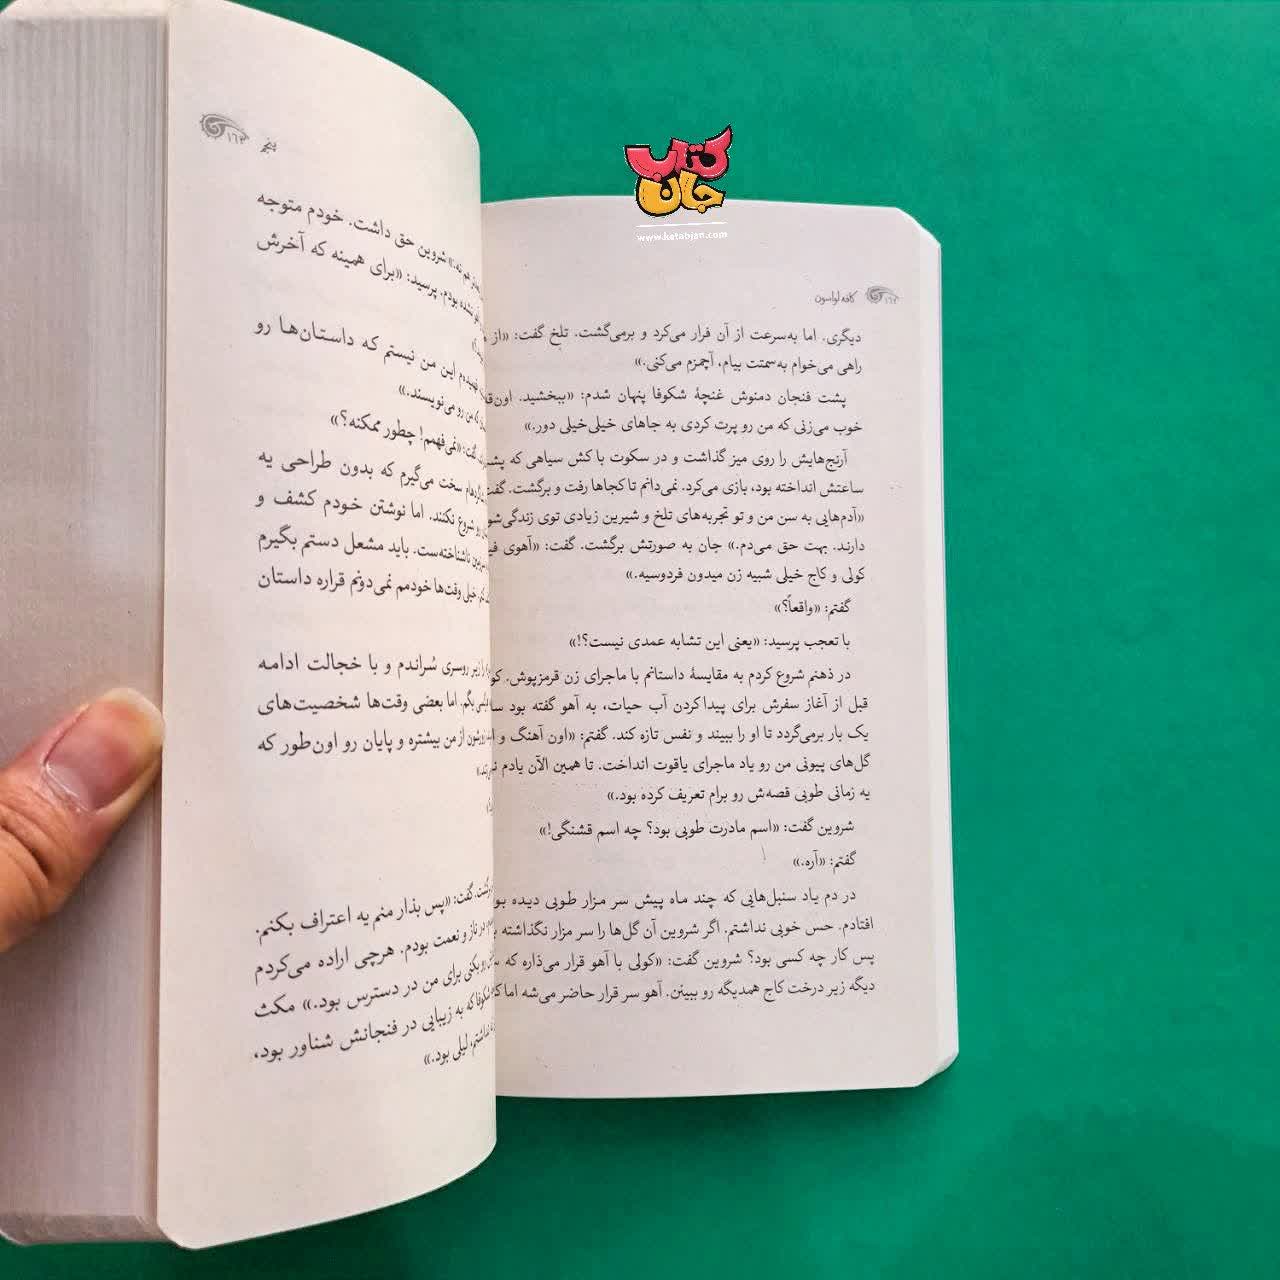 کتاب جان
www.ketabjan.com
۱۶۲ کافه لواسون
دیگری. اما به‌سرعت از آن فرار می‌کرد و برمی‌گشت. تلخ گفت: «از
راهی می‌خوام به‌سمتت بیام، آچمزم می‌کنی.»
پشت فنجان دمنوش غنچهٔ شکوفا پنهان شدم: «ببخشید. اون‌قد
خوب می‌زنی که من رو پرت کردی به جاهای خیلی‌خیلی دور.»
آرنج‌هایش را روی میز گذاشت و در سکوت با کش سیاهی که
ساعتش انداخته بود، بازی می‌کرد. نمی‌دانم تا کجاها رفت و برگشت. گفت
«آدم‌هایی به سن من و تو تجربه‌های تلخ و شیرین زیادی توی زندگی‌شو
دارند. بهت حق می‌دم.» جان به صورتش برگشت. گفت: «آهوی
کولی و کاج خیلی شبیه زن میدون فردوسیه.»
گفتم: «واقعاً؟»
با تعجب پرسید: «یعنی این تشابه عمدی نیست؟!»
در ذهنم شروع کردم به مقایسهٔ داستانم با ماجرای زن قرمزپوش.
قبل از آغاز سفرش برای پیداکردن آب حیات، به آهو گفته بود
یک بار برمی‌گردد تا او را ببیند و نفس تازه کند. گفتم: «اون آهنگ و
گل‌های پیونی من رو یاد ماجرای یاقوت انداخت. تا همین الآن یادم
یه زمانی طوبی قصه‌ش رو برام تعریف کرده بود.»
شروین گفت: «اسم مادرت طوبی بود؟ چه اسم قشنگی!»
گفتم: «آره.»
در دم یاد سنبل‌هایی که چند ماه پیش سر مزار طوبی دیده
افتادم. حس خوبی نداشتم. اگر شروین آن گل‌ها را سر مزار نگذاشته
پس کار چه کسی بود؟ شروین گفت: «کولی با آهو قرار می‌ذاره که
دیگه زیر درخت کاج همدیگه رو ببینن. آهو سر قرار حاضر می‌شه اما
پنجم ۱۶۳
هم نه.» شروین حق داشت. خودم متوجه
نشده بودم. پرسید: «برای همینه که آخرش
فهمیده‌م این من نیستم که داستان‌ها رو
من رو می‌نویسند.»
گفت: «نمی‌فهمم! چطور ممکنه؟»
سخت می‌گیرم که بدون طراحی یه
رو شروع نکنند. اما نوشتن خودم کشف و
ناشناخته‌ست. باید مشعل دستم بگیرم
خیلی وقت‌ها خودمم نمی‌دونم قراره داستان
زیر روسری شراندم و با خجالت ادامه
بگم. اما بعضی وقت‌ها شخصیت‌های
از من بیشتره و پایان رو اون‌طور که
گفت: «پس بذار منم یه اعتراف بکنم.
در ناز و نعمت بودم. هرچی اراده می‌کردم
برای من در دسترس بود.» مکث
که به زیبایی در فنجانش شناور بود،
نداشتم، لیلی بود.»